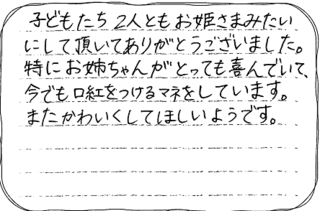 子どもたち 2人ともお姫さまみたい
にして頂いてありがとうございました。
特にお姉ちゃんがとっても喜んでいて、
今でも口紅をつけるマネをしています。
またかわいくしてほしいようです。